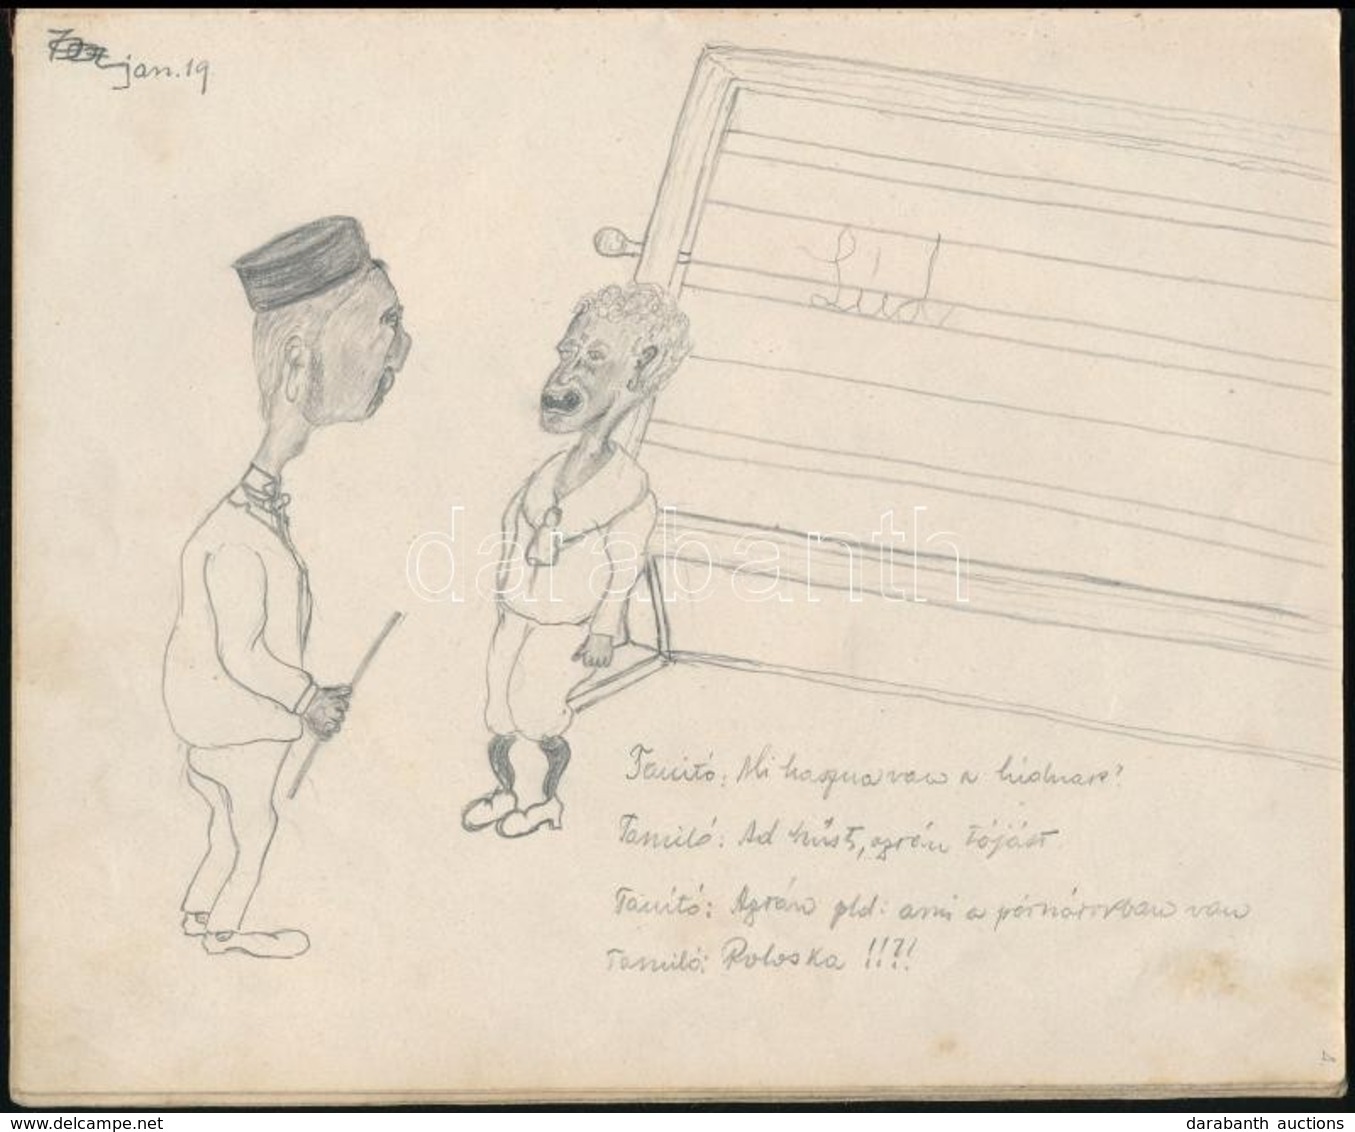 jan. 19
Lúd
Tanító: Mi haszna van a lúdnak?
Tanuló: Ad húst, aztán tójást
Tanító: Aztán pld: ami a párnátokban van
Tanuló: Poloska !!?!
darabanth
www.delcampe.net
darabanth auctions